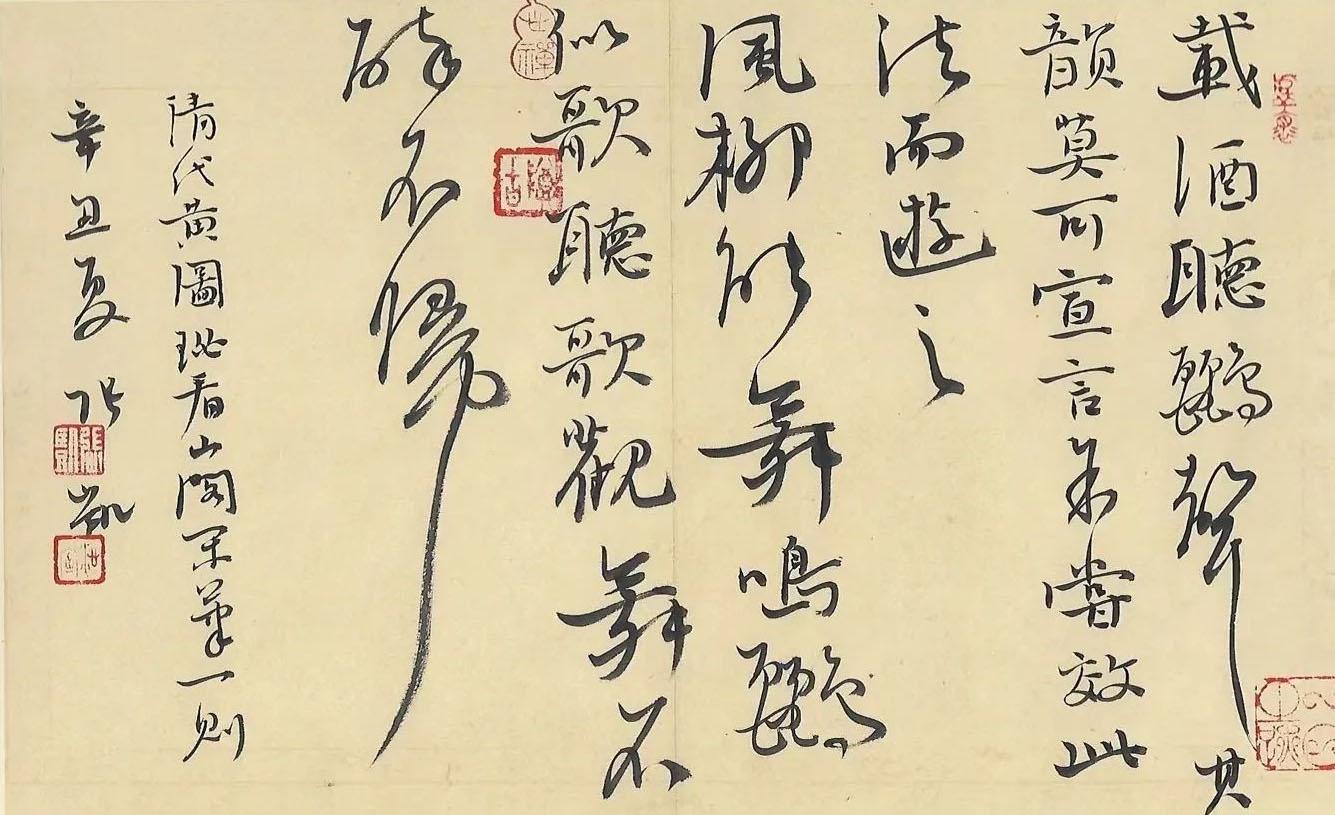 載酒聽鸝聲其
韻莫可宣言余嘗效此
法而遊之
風柳能舞鳴鸝
似歌聽歌觀舞不
醉不歸
清代黃圖珌看山閣閑筆一則
辛丑夏張凱